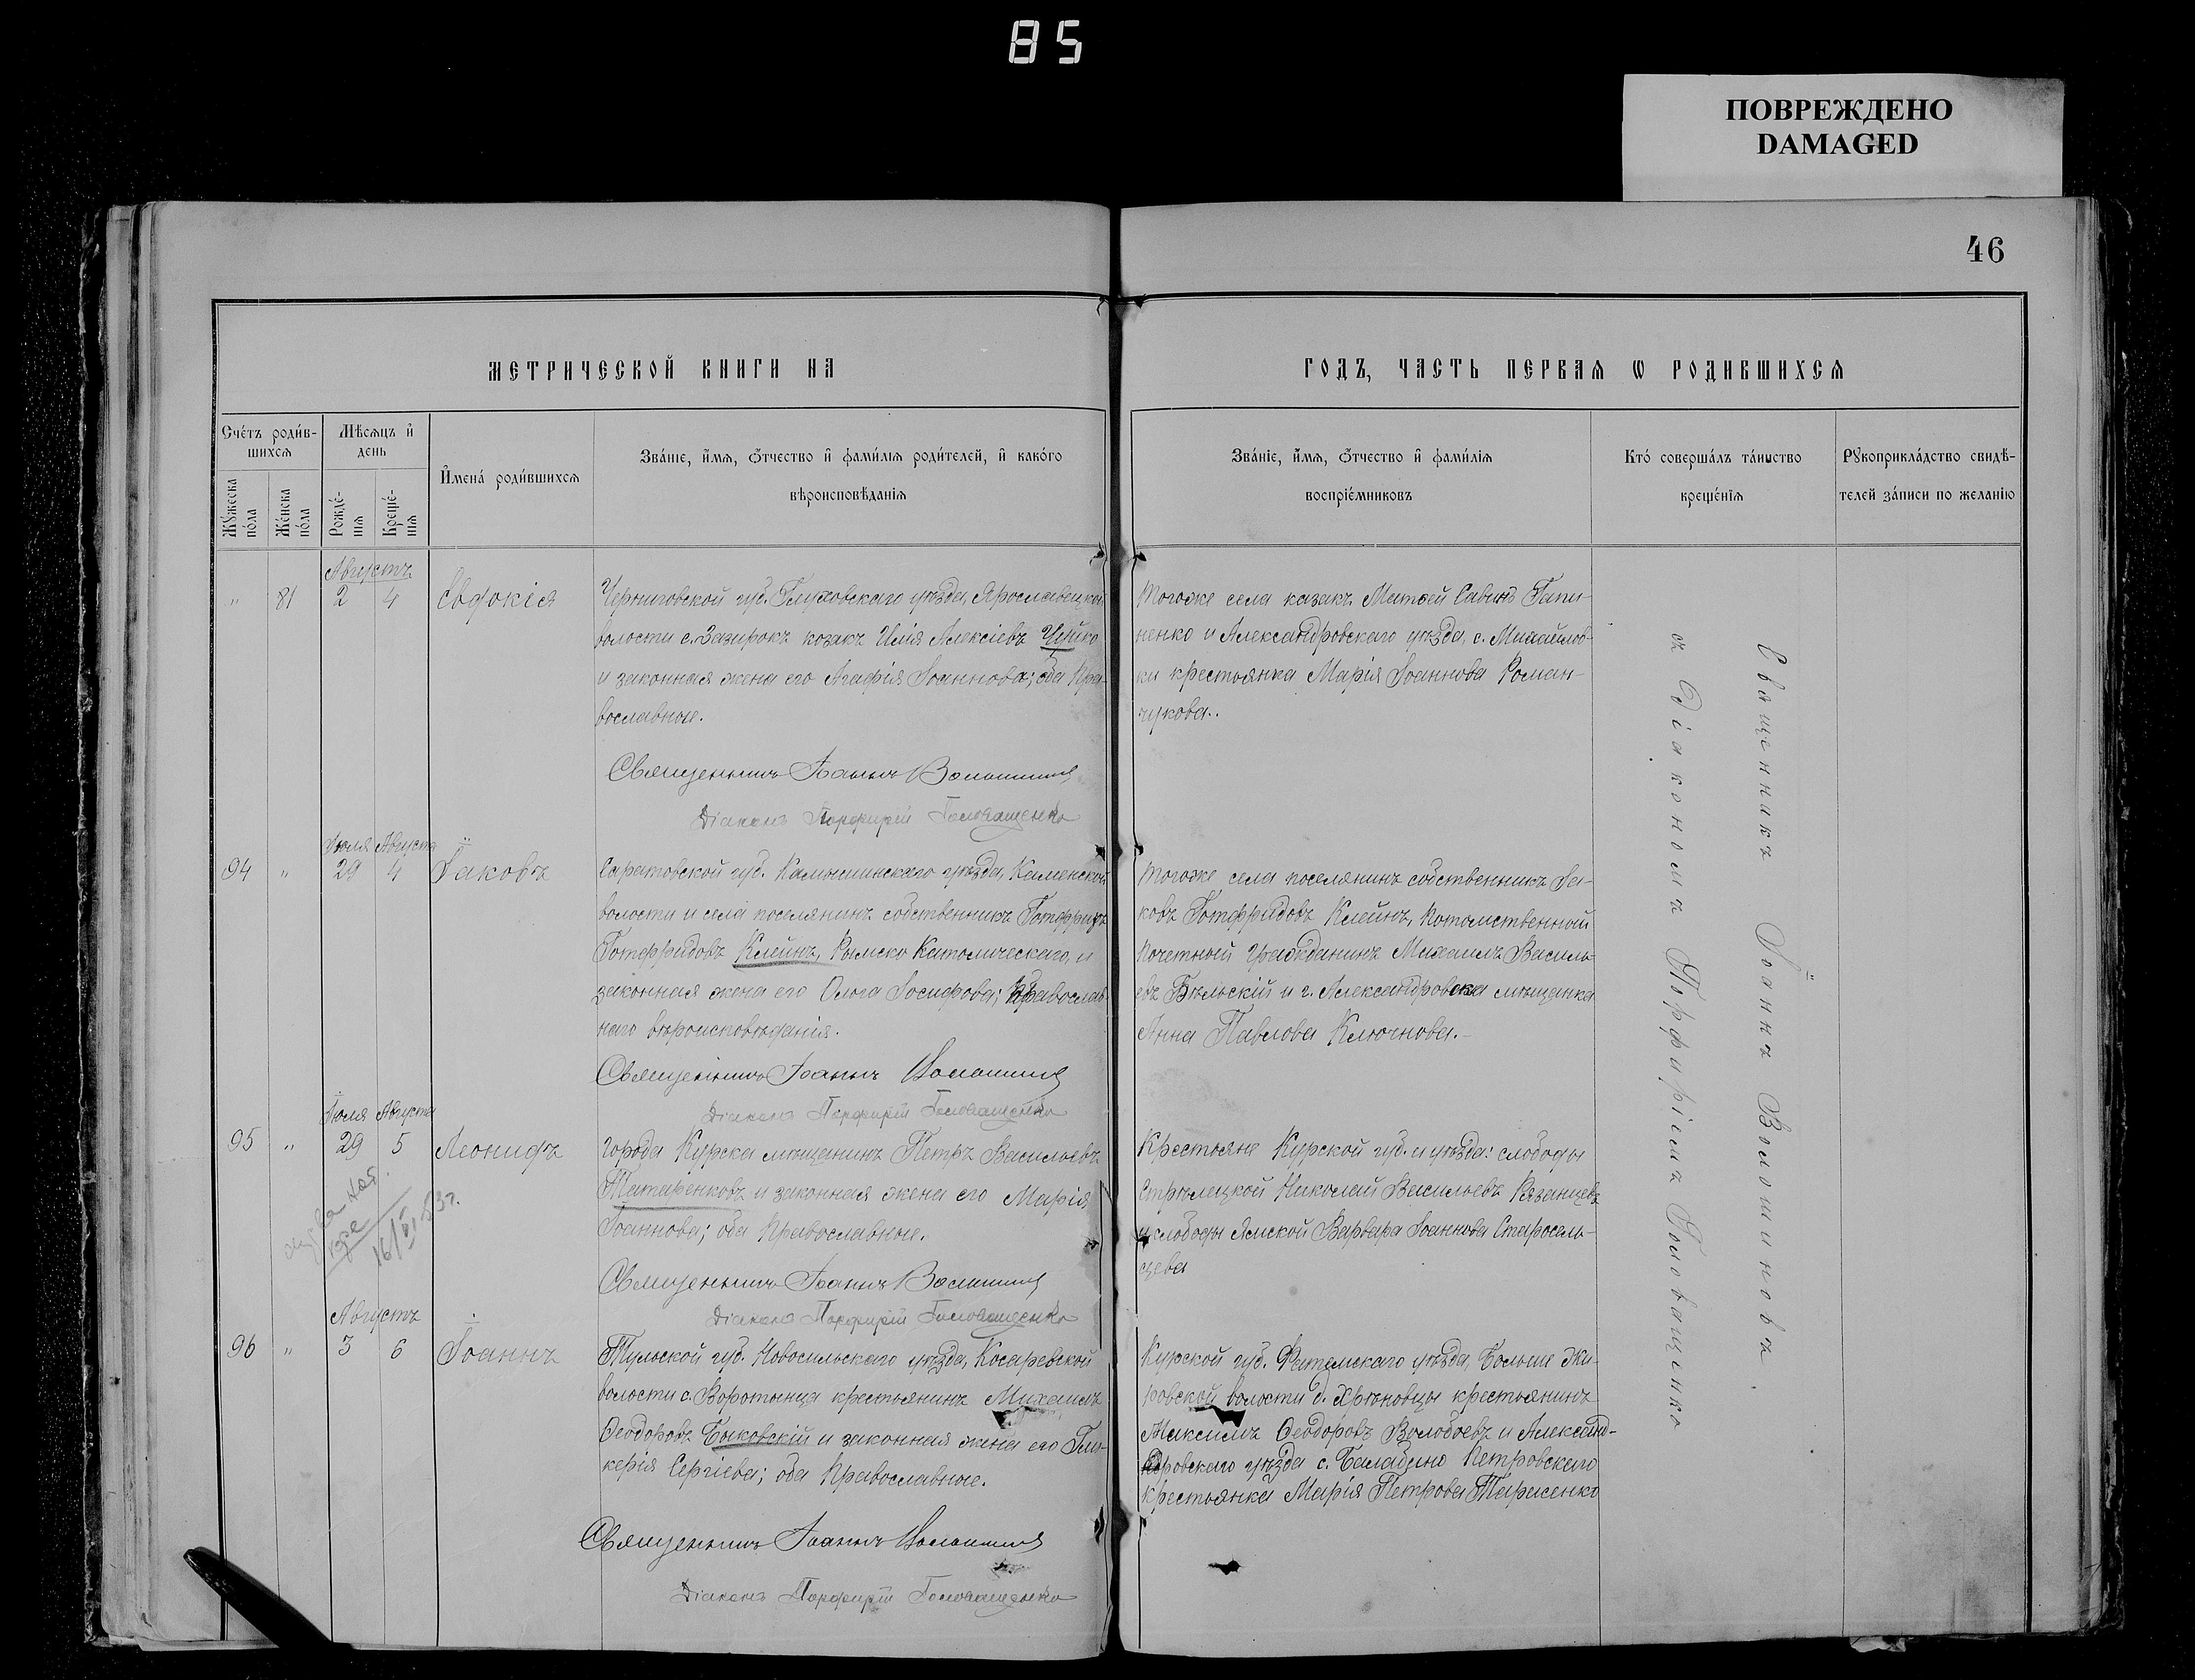 85
ПОВРЕЖДЕНО
DAMAGED
46
МЕТРИЧЕСКОЙ КНИГИ НА
ГОДЪ, ЧАСТЬ ПЕРВАѦ Ѡ РОДИВШИХСѦ
Счетъ родив-
шихсѧ
Мѣсѧцъ и
день
Мꙋжеска
пола
Женска
пола
Рожде-
нїѧ
Креще-
нїѧ
Имена родившихсѧ
Званїе, имѧ, ѻтчество и фамилїѧ родителей, и какого
вѣроисповѣданїѧ
Званїе, имѧ, ѻтчество и фамилїѧ
воспрїемниковъ
Кто совершалъ таинство
крещенїѧ
Рꙋкоприкладство свидѣ-
телей записи по желанїю
Августъ
" 81 2 4 Евдокія
Черниговской губ. Глуховскаго уѣзда, Ярославецкой
волости с. Зазирокъ козакъ Илія Алексіевъ
и законная жена его Агафія Іоаннова; оба Пра-
вославные.
Священникъ Іоаннъ Волошиновъ
Діаконъ Порфирій Головащенко
Тогоже села казакъ Матѳей Савинъ Гапи-
ненко и Александровскаго уѣзда, с. Михайлов-
ки крестьянка Марія Іоаннова Роман-
чукова.
Іюля Августа
94 " 29 4 Іаковъ
Саратовской губ. Камышинскаго уѣзда, Каменской
волости и села поселянинъ собственникъ Готфридъ
Готфридовъ Клейнъ, Римско Католическаго, и
законная жена его Ольга Іосифова; Православ-
наго вѣроисповѣданія.
Священникъ Іоаннъ Волошиновъ
Діаконъ Порфирій Головащенко
Тогоже села поселянинъ собственникъ Іа-
ковъ Готфридовъ Клейнъ, Потомственный
Почетный Гражданинъ Михаилъ Василь-
евъ Бѣльскій и г. Александровска мѣщанка
Анна Павлова Ключнова.
Іюля Августа
95 " 29 5 Леонидъ
16/VI 53г.
города Курска мѣщанинъ Петръ Васильевъ
Татаренковъ и законная жена его Марія
Іоаннова; оба Православные.
Священникъ Іоаннъ Волошиновъ
Діаконъ Порфирій Головащенко
Крестьяне Курской губ. и уѣзда: слободы
Стрѣлецкой Николай Васильевъ Рязанцевъ
и слободы Ямской Варвара Іоаннова Старосель-
цева
Августъ
96 " 3 6 Іоаннъ
Тульской губ. Новосильскаго уѣзда, Косаревской
волости с. Воротынца крестьянинъ Михаилъ
Ѳеодоровъ Быковскій и законная жена его Гли-
керія Сергіева; оба Православные.
Священникъ Іоаннъ Волошиновъ
Діаконъ Порфирій Головащенко
Курской губ. Фатежскаго уѣзда, Больше Жи-
ровской волости д. Хрѣновцы крестьянинъ
Максимъ Ѳеодоровъ Волобоевъ и Александ-
ровскаго уѣзда с. Балабино Петровскаго
крестьянка Марія Петрова Тарасенко
Священникъ Іоаннъ Волошиновъ
съ Діакономъ Порфиріемъ Головащенко